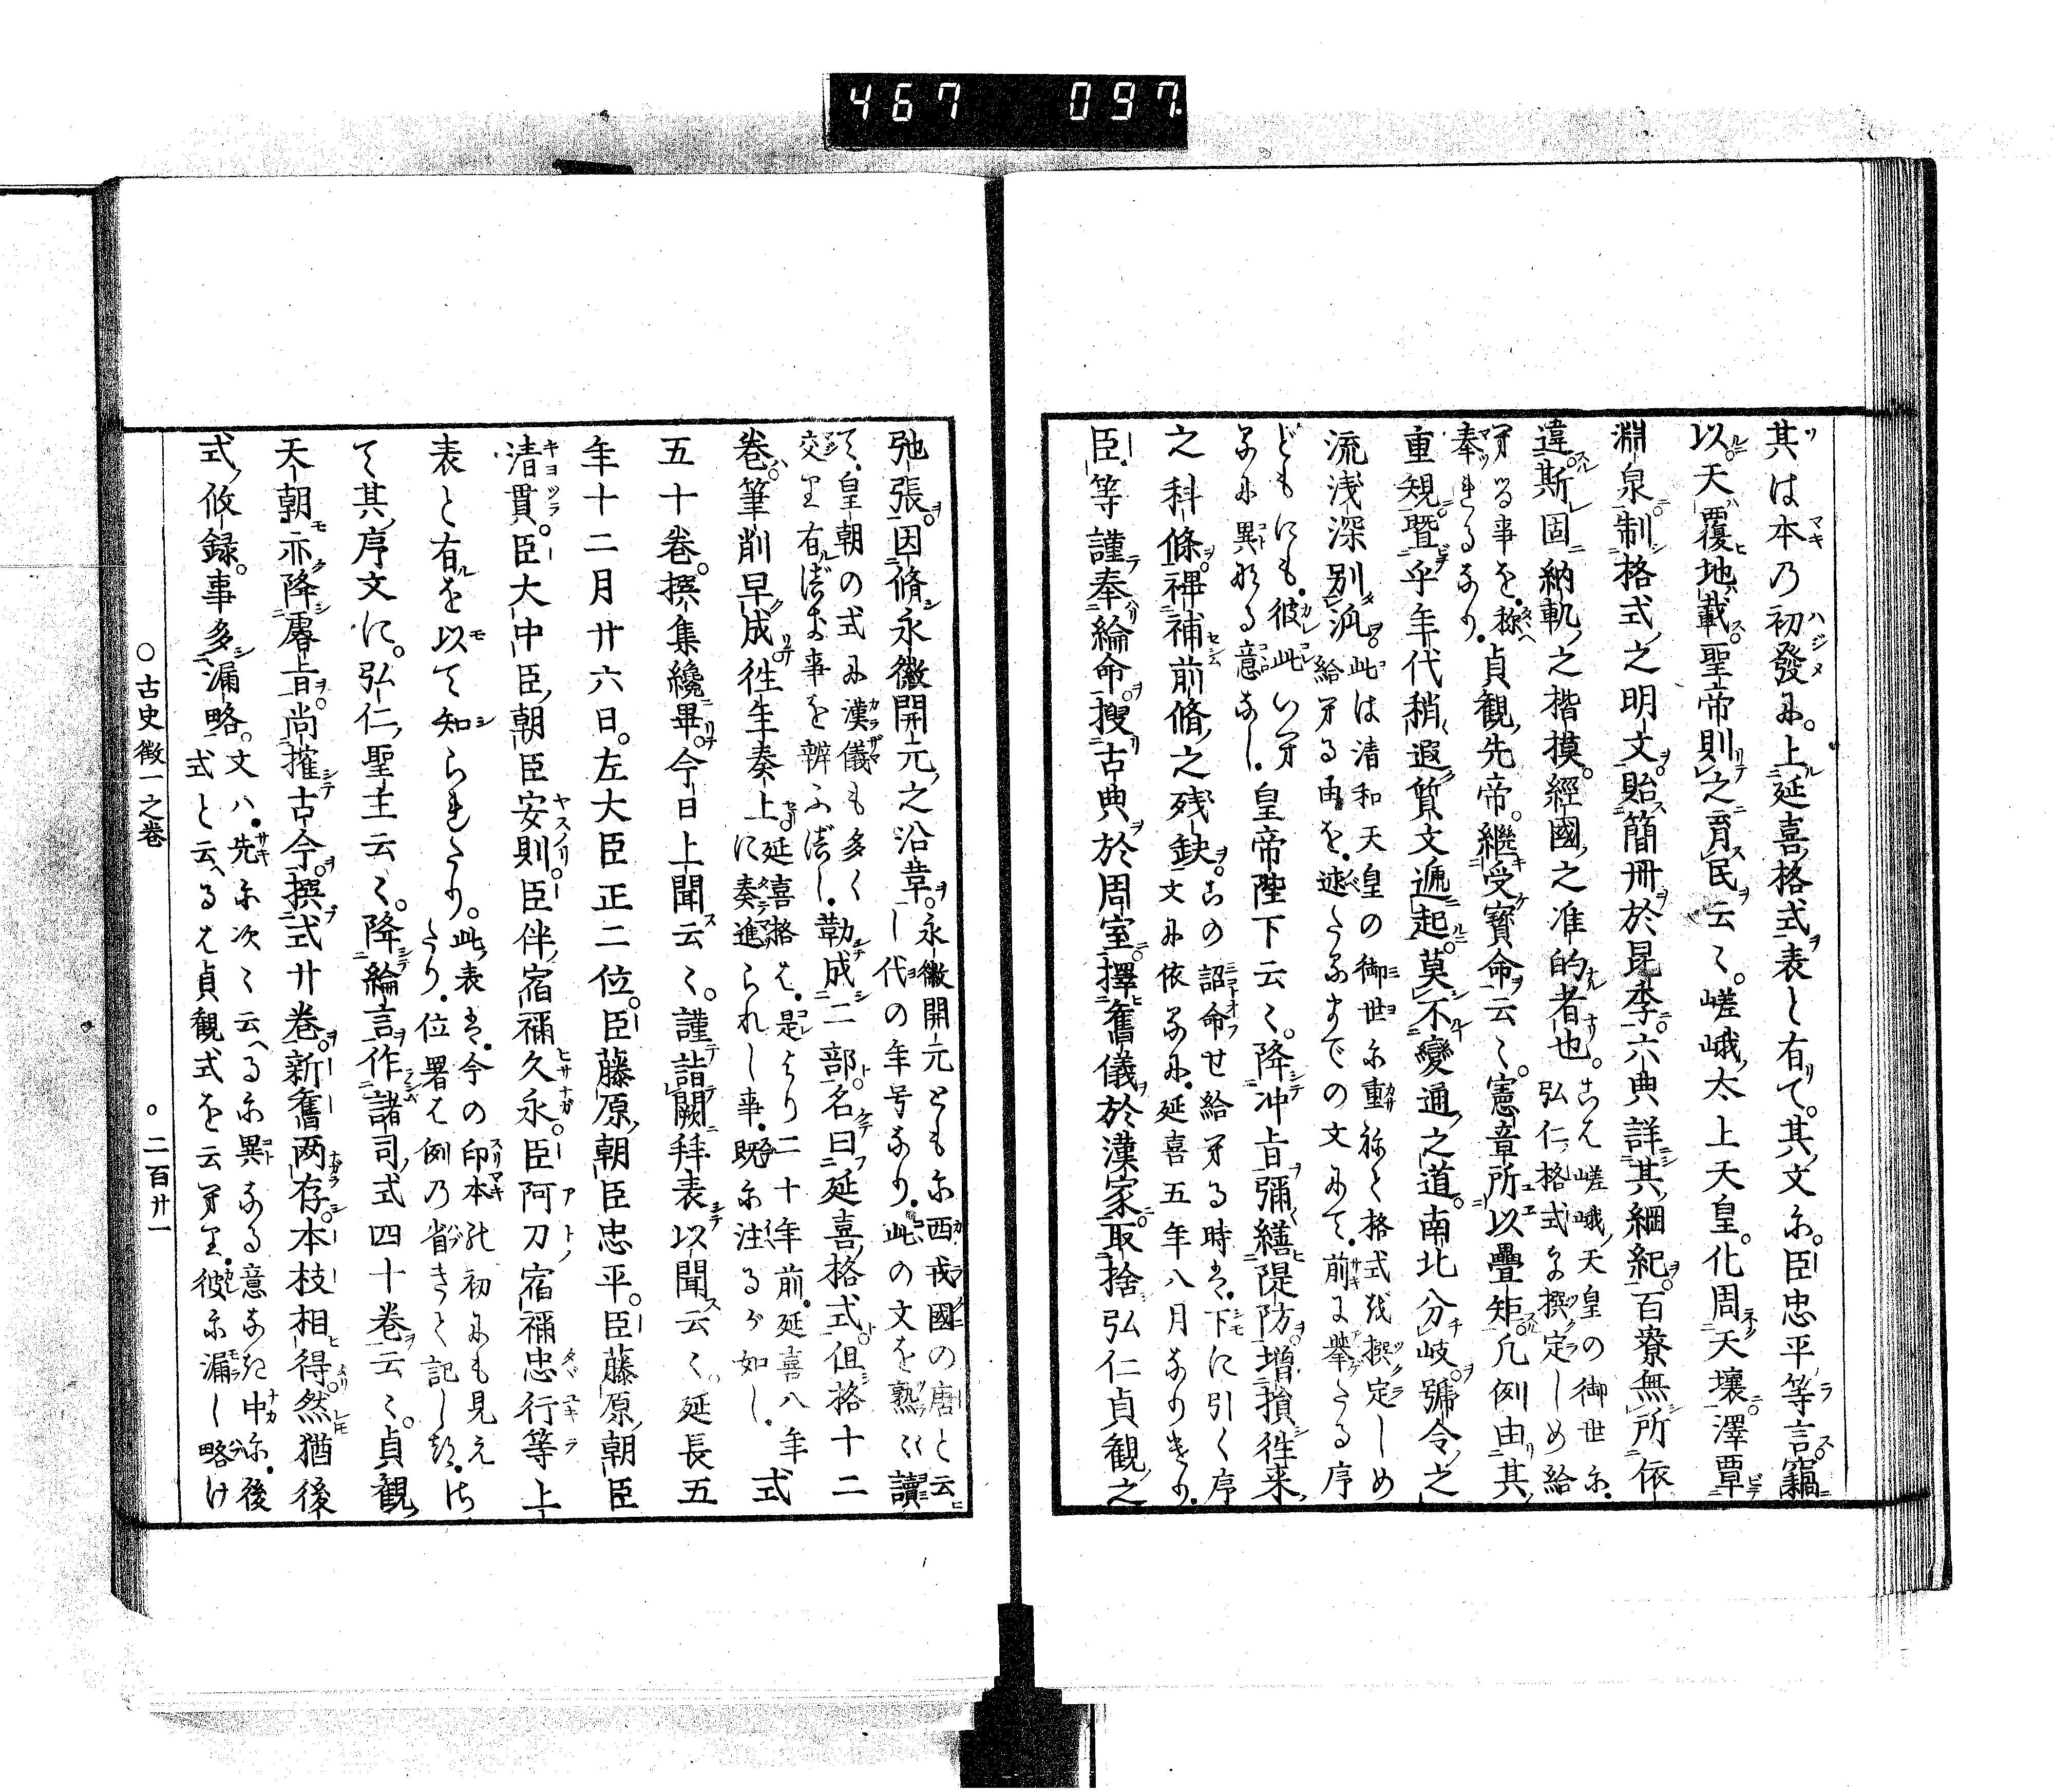 467 097
其は本乃初發に。上延喜格式表と有て。其文に。臣忠平等言竊
以天覆地載聖帝則之育民云々。嵯峨太上天皇。化周天壤澤覃
淵泉制格式之明文貽簡冊於昆季。六典詳其綱紀。百寮無所依
違斯固納軌之楷摸。經國之准的者也。
こは嵯峨天皇の御世に。
弘仁格式を撰定しめ給
へる事を。称へ
奉れるなり。
貞観先帝。繼受寳命云々。憲章所以疊矩。凡例由其
重規曁乎年代稍遐質文遞起。莫不變通之道。南北分岐。號令之
流浅深別派。
此は清和天皇の御世に重ねて格式を撰定しめ
給へる由を。述たるまでの文にて。前に擧たる序
どもにも。彼此いへ
るに異なる意なし。
皇帝陛下云々。降冲旨彌繕隄防。増損徃来
之科條。裨補前脩之残缺。
この詔命せ給へる時は。下に引く序
文に依るに。延喜五年八月なりき。
臣等謹奉綸命。捜古典於周室。擇舊儀於漢家。取捨弘仁貞観之
弛張。因脩永徽開元之沿革。
永徽開元ともに西戎國の唐と云
し代の年号なり。此の文を熟く讀
て。皇朝の式に漢儀も多く
交り有べき事を辨ふべし。
勒成二部。名曰延喜格式。但格十二
巻。筆削早成。徃年奏上。
延喜格は。是より二十年前。延喜八年
に奏進られし事。既に注るが如し。
式
五十巻。撰集纔畢。今日上聞云々。謹詣闕拜表以聞云々延長五
年十二月廿六日。左大臣正二位。臣藤原朝臣忠平。臣藤原朝臣
清貫。臣大中臣朝臣安則。臣伴宿禰久永。臣阿刀宿禰忠行等上
表と有を以て知られたり。
此表は。今の印本の初にも見え
たり。位署は例の省きて記しつ。
さ
て其序文に。弘仁聖主云々。降綸言作諸司式四十巻云々。貞観
天朝亦降睿旨。尚搉古今。撰式廿巻。新舊两存。本枝相得。然猶後
式攸録。事多漏略。
文ハ。先に次々云へるに異なる意なき中に。後
式と云へるは貞観式を云へり。彼に漏し略け
○古史徴一之巻
○二百廿一